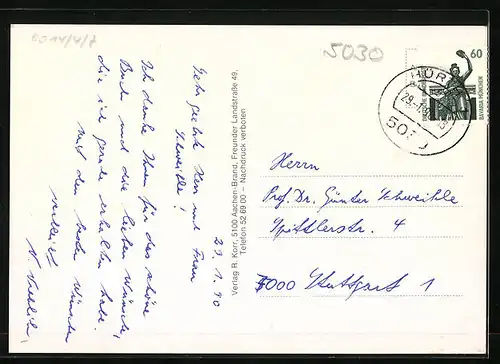 6014/4/7
5030
60
BAVARIA MÜNCHEN
HÜR
5030
29. 1. 90
Sehr geehrter Herr und Frau
Schweikle!
Ich danke Ihnen für das schöne
Buch und die lieben Wünsche,
die ich gerade erhalten habe.
Mit den besten Wünschen
Verlag R. Korr, 5100 Aachen-Brand, Freunder Landstraße 49,
Telefon 52 69 00 – Nachdruck verboten
Herrn
Prof. Dr. Günter Schweikle
Spittlerstr. 4
7000 Stuttgart 1